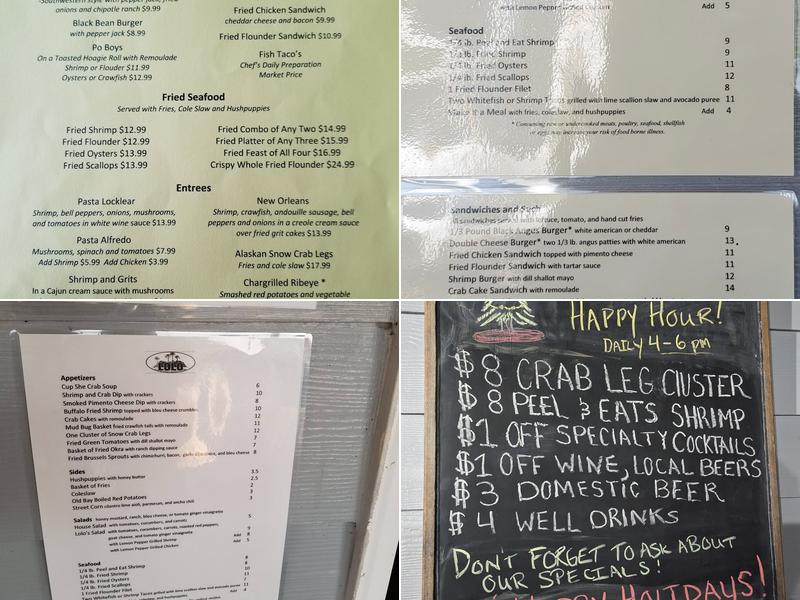 Southwestern style with pepper jack, fried
onions and chipotle ranch $9.99
Black Bean Burger
with pepper jack $8.99
Po Boys
On a Toasted Hoagie Roll with Remoulade
Shrimp or Flouder $11.99
Oysters or Crawfish $12.99
Fried Chicken Sandwich
cheddar cheese and bacon $9.99
Fried Flounder Sandwich $10.99
Fish Taco's
Chef's Daily Preparation
Market Price
Fried Seafood
Served with Fries, Cole Slaw and Hushpuppies
Fried Shrimp $12.99
Fried Flounder $12.99
Fried Oysters $13.99
Fried Scallops $13.99
Fried Combo of Any Two $14.99
Fried Platter of Any Three $15.99
Fried Feast of All Four $16.99
Crispy Whole Fried Flounder $24.99
Entrees
Pasta Locklear
Shrimp, bell peppers, onions, mushrooms,
and tomatoes in white wine sauce $13.99
Pasta Alfredo
Mushrooms, spinach and tomatoes $7.99
Add Shrimp $5.99 Add Chicken $3.99
Shrimp and Grits
In a Cajun cream sauce with mushrooms
New Orleans
Shrimp, crawfish, andouille sausage, bell
peppers and onions in a creole cream sauce
over fried grit cakes $13.99
Alaskan Snow Crab Legs
Fries and cole slaw $17.99
Chargrilled Ribeye *
Smashed red potatoes and vegetable
with Lemon Pepper Grilled Chicken Add 5
Seafood
1/4 lb. Peel and Eat Shrimp 9
1/4 lb. Fried Shrimp 9
1/4 lb. Fried Oysters 11
1/4 lb. Fried Scallops 12
1 Fried Flounder Filet 8
Two Whitefish or Shrimp Tacos grilled with lime scallion slaw and avocado puree 11
Make it a Meal with fries, coleslaw, and hushpuppies Add 4
* Consuming raw or undercooked meats, poultry, seafood, shellfish
or eggs may increase your risk of food borne illness.
Sandwiches and Such
all sandwiches served with lettuce, tomato, and hand cut fries
1/3 Pound Black Angus Burger* white american or cheddar 9
Double Cheese Burger* two 1/3 lb. angus patties with white american 13
Fried Chicken Sandwich topped with pimento cheese 11
Fried Flounder Sandwich with tartar sauce 11
Shrimp Burger with dill shallot mayo 12
Crab Cake Sandwich with remoulade 14
LOLO
Appetizers
Cup She Crab Soup 6
Shrimp and Crab Dip with crackers 10
Smoked Pimento Cheese Dip with crackers 8
Buffalo Fried Shrimp topped with bleu cheese crumbles 10
Crab Cakes with remoulade 12
Mud Bug Basket fried crawfish tails with remoulade 11
One Cluster of Snow Crab Legs 12
Fried Green Tomatoes with dill shallot mayo 7
Basket of Fried Okra with ranch dipping sauce 7
Fried Brussels Sprouts with chimichurri, bacon, and bleu cheese 8
Sides
Hushpuppies with honey butter 3.5
Basket of Fries 2.5
Coleslaw 2
Old Bay Boiled Red Potatoes 3
Street Corn cilantro lime aioli, parmesan, and ancho chili 3
Salads honey mustard, ranch, bleu cheese, or tomato ginger vinaigrette
House Salad with tomatoes, cucumbers, and carrots 5
Lolo's Salad with tomatoes, cucumbers, carrots, roasted red peppers,
goat cheese, and tomato ginger vinaigrette 9
with Lemon Pepper Grilled Shrimp Add 8
with Lemon Pepper Grilled Chicken Add 5
Seafood
1/4 lb. Peel and Eat Shrimp 8
1/4 lb. Fried Shrimp 8
1/4 lb. Fried Oysters 10
1/4 lb. Fried Scallops 11
1 Fried Flounder Filet 7
Two Whitefish or Shrimp Tacos grilled with lime scallion slaw and avocado puree 11
Add 4
HAPPY HOUR!
DAILY 4-6 PM
$8 CRAB LEG CLUSTER
$8 PEEL & EATS SHRIMP
$1 OFF SPECIALTY COCKTAILS
$1 OFF WINE, LOCAL BEERS
$3 DOMESTIC BEER
$4 WELL DRINKS
DON'T FORGET TO ASK ABOUT
OUR SPECIALS!
HAPPY HOLIDAYS!